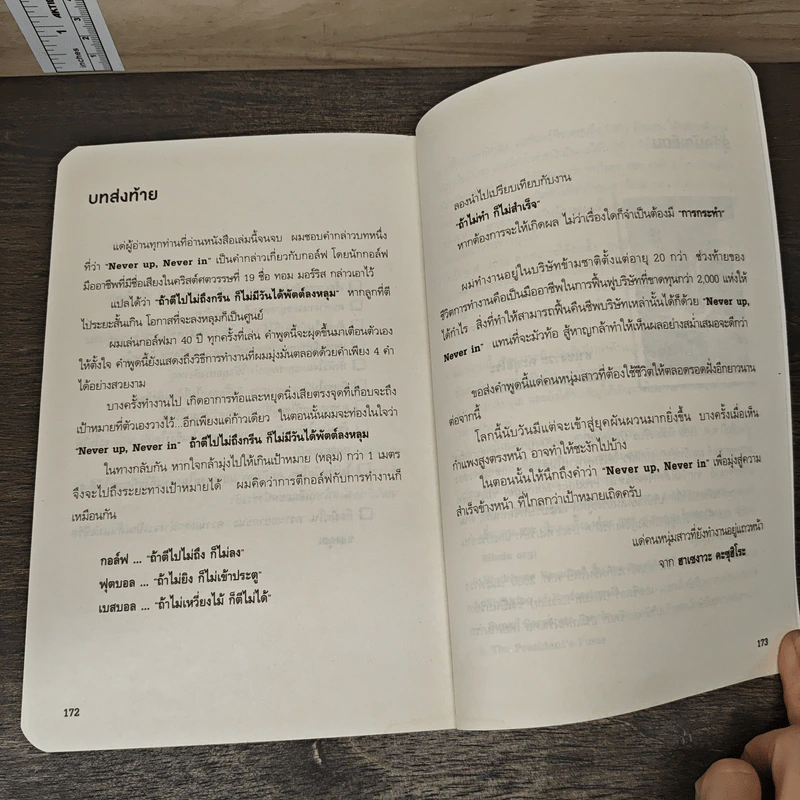 บทส่งท้าย
แด่ผู้อ่านทุกท่านที่อ่านหนังสือเล่มนี้จนจบ ผมชอบคำกล่าวบทหนึ่ง
ที่ว่า "Never up, Never in" เป็นคำกล่าวเกี่ยวกับกอล์ฟ โดยนักกอล์ฟ
มืออาชีพที่มีชื่อเสียงในคริสต์ศตวรรษที่ 19 ชื่อ ทอม มอร์ริส กล่าวเอาไว้
แปลได้ว่า "ถ้าตีไปไม่ถึงกรีน ก็ไม่มีวันได้พัตต์ลงหลุม" หากลูกที่ตี
ไประยะสั้นเกิน โอกาสที่จะลงหลุมก็เป็นศูนย์
ผมเล่นกอล์ฟมา 40 ปี ทุกครั้งที่เล่น คำพูดนี้จะผุดขึ้นมาเตือนตัวเอง
ให้ตั้งใจ คำพูดนี้ยังแสดงถึงวิธีการทำงานที่ผมมุ่งมั่นตลอดด้วยคำเพียง 4 คำ
ได้อย่างสวยงาม
บางครั้งทำงานไป เกิดอาการท้อและหยุดนิ่งเสียตรงจุดที่เกือบจะถึง
เป้าหมายที่ตัวเองวางไว้...อีกเพียงแค่ก้าวเดียว ในตอนนั้นผมจะท่องในใจว่า
"Never up, Never in" ถ้าตีไปไม่ถึงกรีน ก็ไม่มีวันได้พัตต์ลงหลุม
ในทางกลับกัน หากใจกล้ามุ่งไปให้เกินเป้าหมาย (หลุม) กว่า 1 เมตร
จึงจะไปถึงระยะทางเป้าหมายได้ ผมคิดว่าการตีกอล์ฟกับการทำงานก็
เหมือนกัน
กอล์ฟ ... "ถ้าตีไปไม่ถึง ก็ไม่ลง"
ฟุตบอล ... "ถ้าไม่ยิง ก็ไม่เข้าประตู"
เบสบอล ... "ถ้าไม่เหวี่ยงไม้ ก็ตีไม่ได้"
172
ลองนำไปเปรียบเทียบกับงาน
"ถ้าไม่ทำ ก็ไม่สำเร็จ"
หากต้องการจะให้เกิดผล ไม่ว่าเรื่องใดก็จำเป็นต้องมี "การกระทำ"
ผมทำงานอยู่ในบริษัทข้ามชาติตั้งแต่อายุ 20 กว่า ช่วงท้ายของ
ชีวิตการทำงานคือเป็นมืออาชีพในการฟื้นฟูบริษัทที่ขาดทุนกว่า 2,000 แห่งให้
ได้กำไร สิ่งที่ทำให้สามารถฟื้นคืนชีพบริษัทเหล่านั้นได้ก็ด้วย "Never up,
Never in" แทนที่จะมัวท้อ สู้หาญกล้าทำให้เห็นผลอย่างสม่ำเสมอจะดีกว่า
ขอส่งคำพูดนี้แด่คนหนุ่มสาวที่ต้องใช้ชีวิตให้ตลอดรอดฝั่งอีกยาวนาน
ต่อจากนี้
โลกนี้นับวันมีแต่จะเข้าสู่ยุคผันผวนมากยิ่งขึ้น บางครั้งเมื่อเห็น
กำแพงสูงตรงหน้า อาจทำให้ชะงักไปบ้าง
ในตอนนั้นให้นึกถึงคำว่า "Never up, Never in" เพื่อมุ่งสู่ความ
สำเร็จข้างหน้า ที่ไกลกว่าเป้าหมายเถิดครับ
แด่คนหนุ่มสาวที่ยังทำงานอยู่แถวหน้า
จาก ฮาเซงาวะ คะซุฮิโระ
173
inches
1
2
3